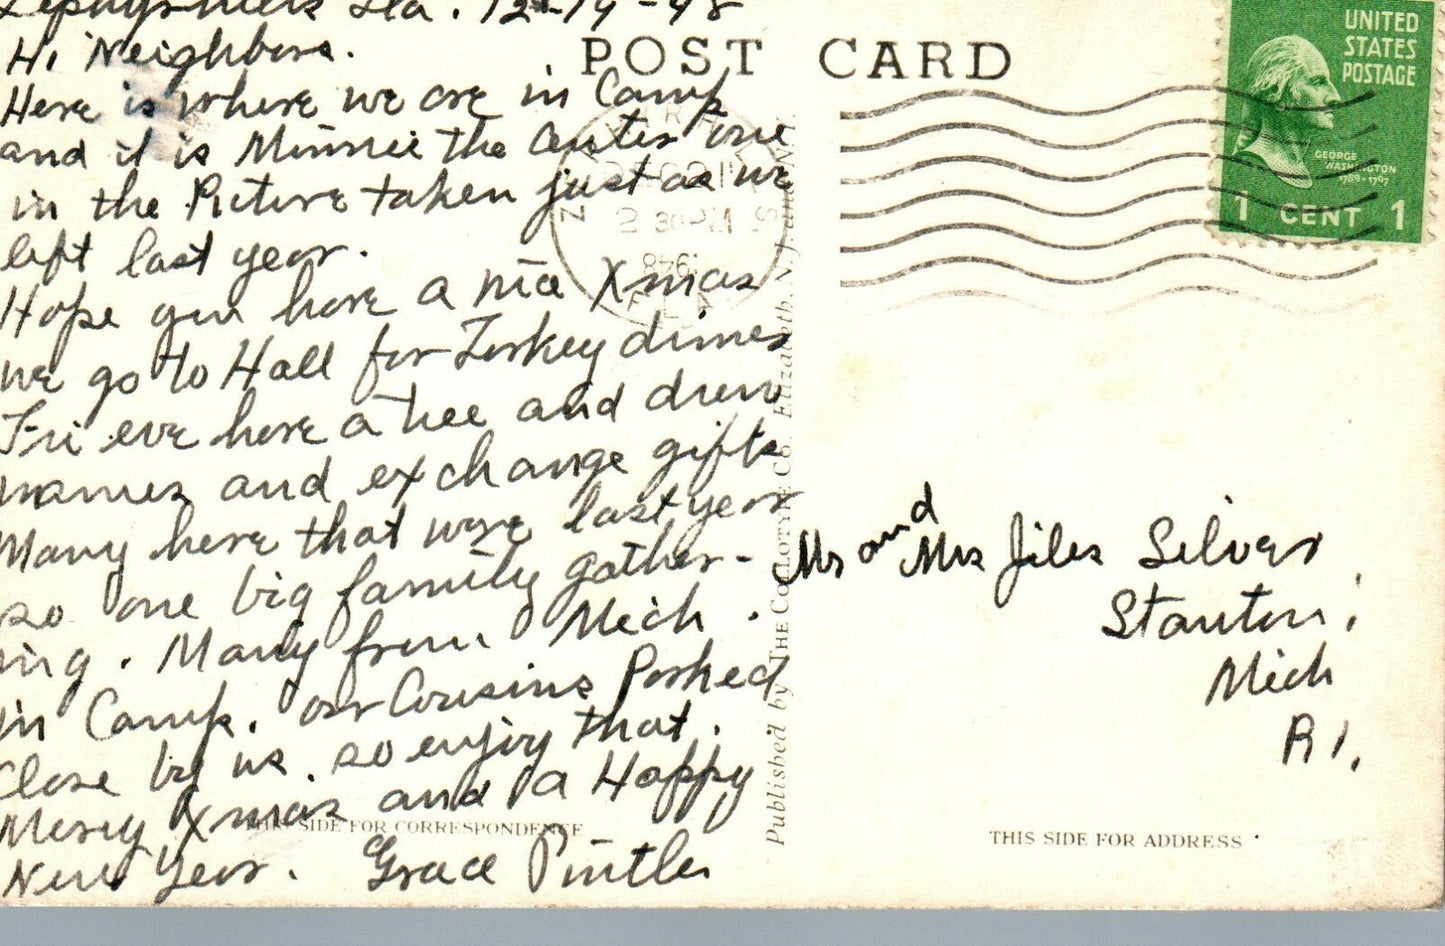 Zephyrhills Fla. 12-19-48
Hi Neighbors.
Here is where we are in Camp
and it is Minnie the center one
in the Picture taken just as we
left last year.
Hope you have a nice Xmas
we go to Hall for Turkey dinner
Fri eve have a tree and drew
names and exchange gifts
Many here that were last year
so one big family gather-
ing. Many from Mich.
in Camp. our Cousins Parked
Close by us. so enjoy that.
Merry Xmas and a Happy
New Year. Grace Pintler
THIS SIDE FOR CORRESPONDENCE
POST CARD
1948
FLA
Published by THE COLLOTYPE CO. Elizabeth, N. J.
UNITED
STATES
POSTAGE
GEORGE
WASHINGTON
1789-1797
1 CENT 1
Mr and Mrs Jiles Silver
Stanton,
Mich
R 1.
THIS SIDE FOR ADDRESS